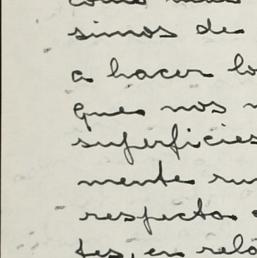 como
simos de
a hacer lo
que nos
superficies
mente
respecto
tes, en rela